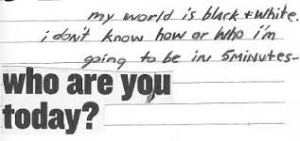 my world is black + white.
i don't know how or who i'm
going to be in 5 minutes-
who are you
today?